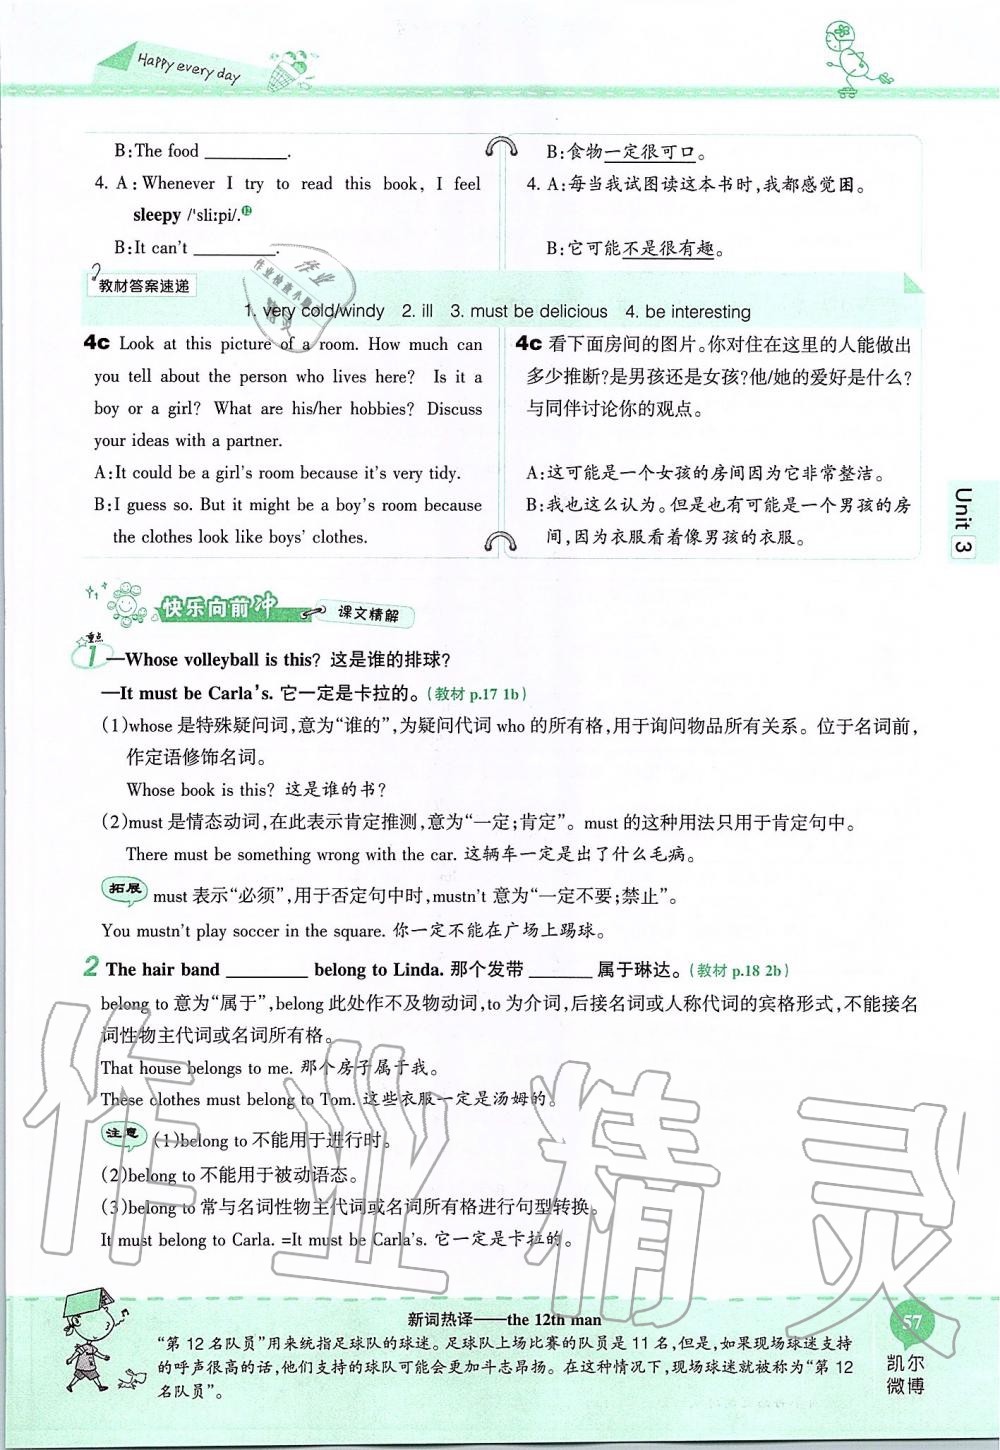 Happy every day
B:The food _________.
B:食物一定很可口。
4. A:Whenever I try to read this book, I feel
sleepy /'sli:pi/.⑫
B:It can't _________.
4. A:每当我试图读这本书时,我都感觉困。
B:它可能不是很有趣。
教材答案速递
1. very cold/windy 2. ill 3. must be delicious 4. be interesting
4c Look at this picture of a room. How much can
you tell about the person who lives here? Is it a
boy or a girl? What are his/her hobbies? Discuss
your ideas with a partner.
A:It could be a girl's room because it's very tidy.
B:I guess so. But it might be a boy's room because
the clothes look like boys' clothes.
4c 看下面房间的图片。你对住在这里的人能做出
多少推断?是男孩还是女孩?他/她的爱好是什么?
与同伴讨论你的观点。
A:这可能是一个女孩的房间因为它非常整洁。
B:我也这么认为。但是也有可能是一个男孩的房
间,因为衣服看着像男孩的衣服。
Unit 3
快乐向前冲 课文精解
重点
1 —Whose volleyball is this? 这是谁的排球?
—It must be Carla's. 它一定是卡拉的。(教材 p.17 1b)
(1)whose 是特殊疑问词,意为“谁的”,为疑问代词 who 的所有格,用于询问物品所有关系。位于名词前,
作定语修饰名词。
Whose book is this? 这是谁的书?
(2)must 是情态动词,在此表示肯定推测,意为“一定;肯定”。must 的这种用法只用于肯定句中。
There must be something wrong with the car. 这辆车一定是出了什么毛病。
拓展 must 表示“必须”,用于否定句中时,mustn't 意为“一定不要;禁止”。
You mustn't play soccer in the square. 你一定不能在广场上踢球。
2 The hair band _________ belong to Linda. 那个发带 _______ 属于琳达。(教材 p.18 2b)
belong to 意为“属于”,belong 此处作不及物动词,to 为介词,后接名词或人称代词的宾格形式,不能接名
词性物主代词或名词所有格。
That house belongs to me. 那个房子属于我。
These clothes must belong to Tom. 这些衣服一定是汤姆的。
注意 (1)belong to 不能用于进行时。
(2)belong to 不能用于被动语态。
(3)belong to 常与名词性物主代词或名词所有格进行句型转换。
It must belong to Carla. =It must be Carla's. 它一定是卡拉的。
作业精灵
新词热译——the 12th man
“第 12 名队员”用来统指足球队的球迷。足球队上场比赛的队员是 11 名,但是,如果现场球迷支持
的呼声很高的话,他们支持的球队可能会更加斗志昂扬。在这种情况下,现场球迷就被称为“第 12
名队员”。
57
凯尔
微博